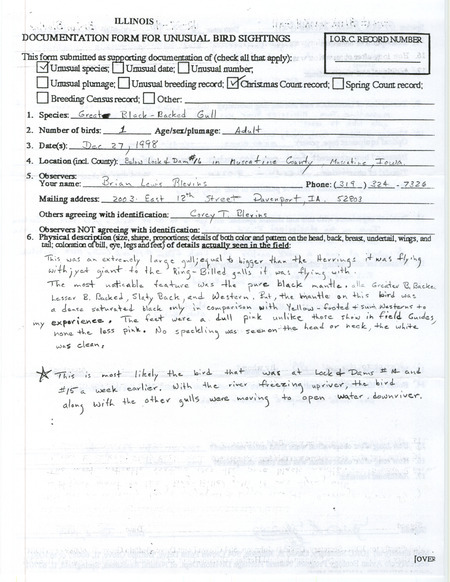 ILLINOIS
DOCUMENTATION FORM FOR UNUSUAL BIRD SIGHTINGS
I.O.R.C. RECORD NUMBER
This form submitted as supporting documentation of (check all that apply):
Unusual species; Unusual date; Unusual number;
Unusual plumage; Unusual breeding record; Christmas Count record; Spring Count record;
Breeding Census record; Other:
1. Species: Great Black-Backed Gull
2. Number of birds: 1 Age/sex/plumage: Adult
3. Date(s): Dec 27, 1998
4. Location (incl. County): Below Lock & Dam #16 in Muscatine County Muscatine, Iowa.
5. Observers:
Your name: Brian Lewis Blevins Phone: (319) 324-7326
Mailing address: 2003 East 12th Street Davenport, IA. 52803
Others agreeing with identification: Corey T. Blevins
Observers NOT agreeing with identification:
6. Physical description (size, shape, proportions; details of both color and pattern on the head, back, breast, undertail, wings, and
tail; coloration of bill, eye, legs and feet) of details actually seen in the field:
This was an extremely large gull, equal to bigger than the Herrings it was flying
with, yet giant to the Ring-Billed gulls it was flying with.
The most noticable feature was the pure black mantle. Greater B. Backe
Lesser B. Backed, Slaty Back, and Western. But, the mantle on this bird was
a dense saturated black only in comparison with Yellow-footed & sum Westerns to
my experience. The feet were a dull pink unlike those show in field Guides,
none the less pink. No speckling was seen on the head or neck, the white
was clean.
This is most likely the bird that was at Lock & Dams #14 and
#15 a week earlier. With the river freezing upriver, the bird
along with the other gulls were moving to open water downriver.
[OVER